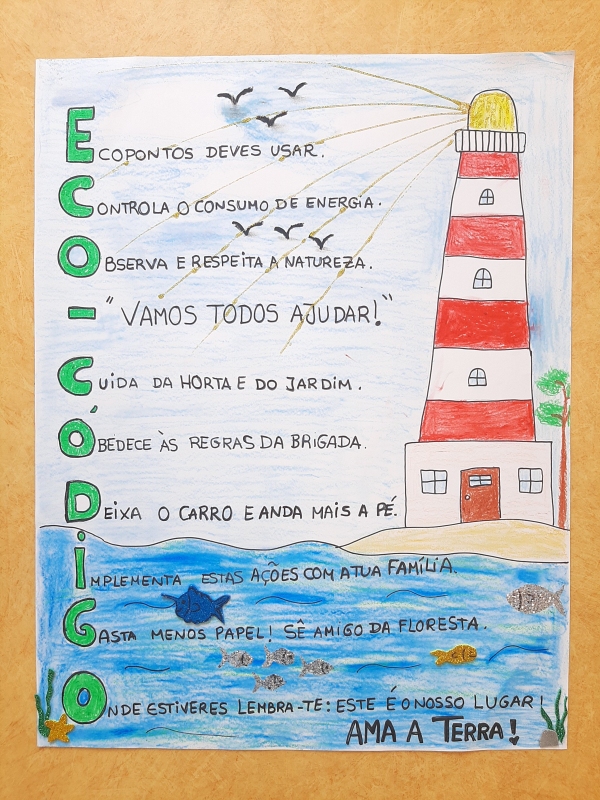 ECOPONTOS DEVES USAR.
CONTROLA O CONSUMO DE ENERGIA.
OBSERVA E RESPEITA A NATUREZA.
- "VAMOS TODOS AJUDAR!"
CUIDA DA HORTA E DO JARDIM.
ÓBEDECE ÀS REGRAS DA BRIGADA.
DEIXA O CARRO E ANDA MAIS A PÉ.
IMPLEMENTA ESTAS AÇÕES COM A TUA FAMÍLIA.
GASTA MENOS PAPEL! SÊ AMIGO DA FLORESTA.
ONDE ESTIVERES LEMBRA-TE: ESTE É O NOSSO LUGAR!
AMA A TERRA!